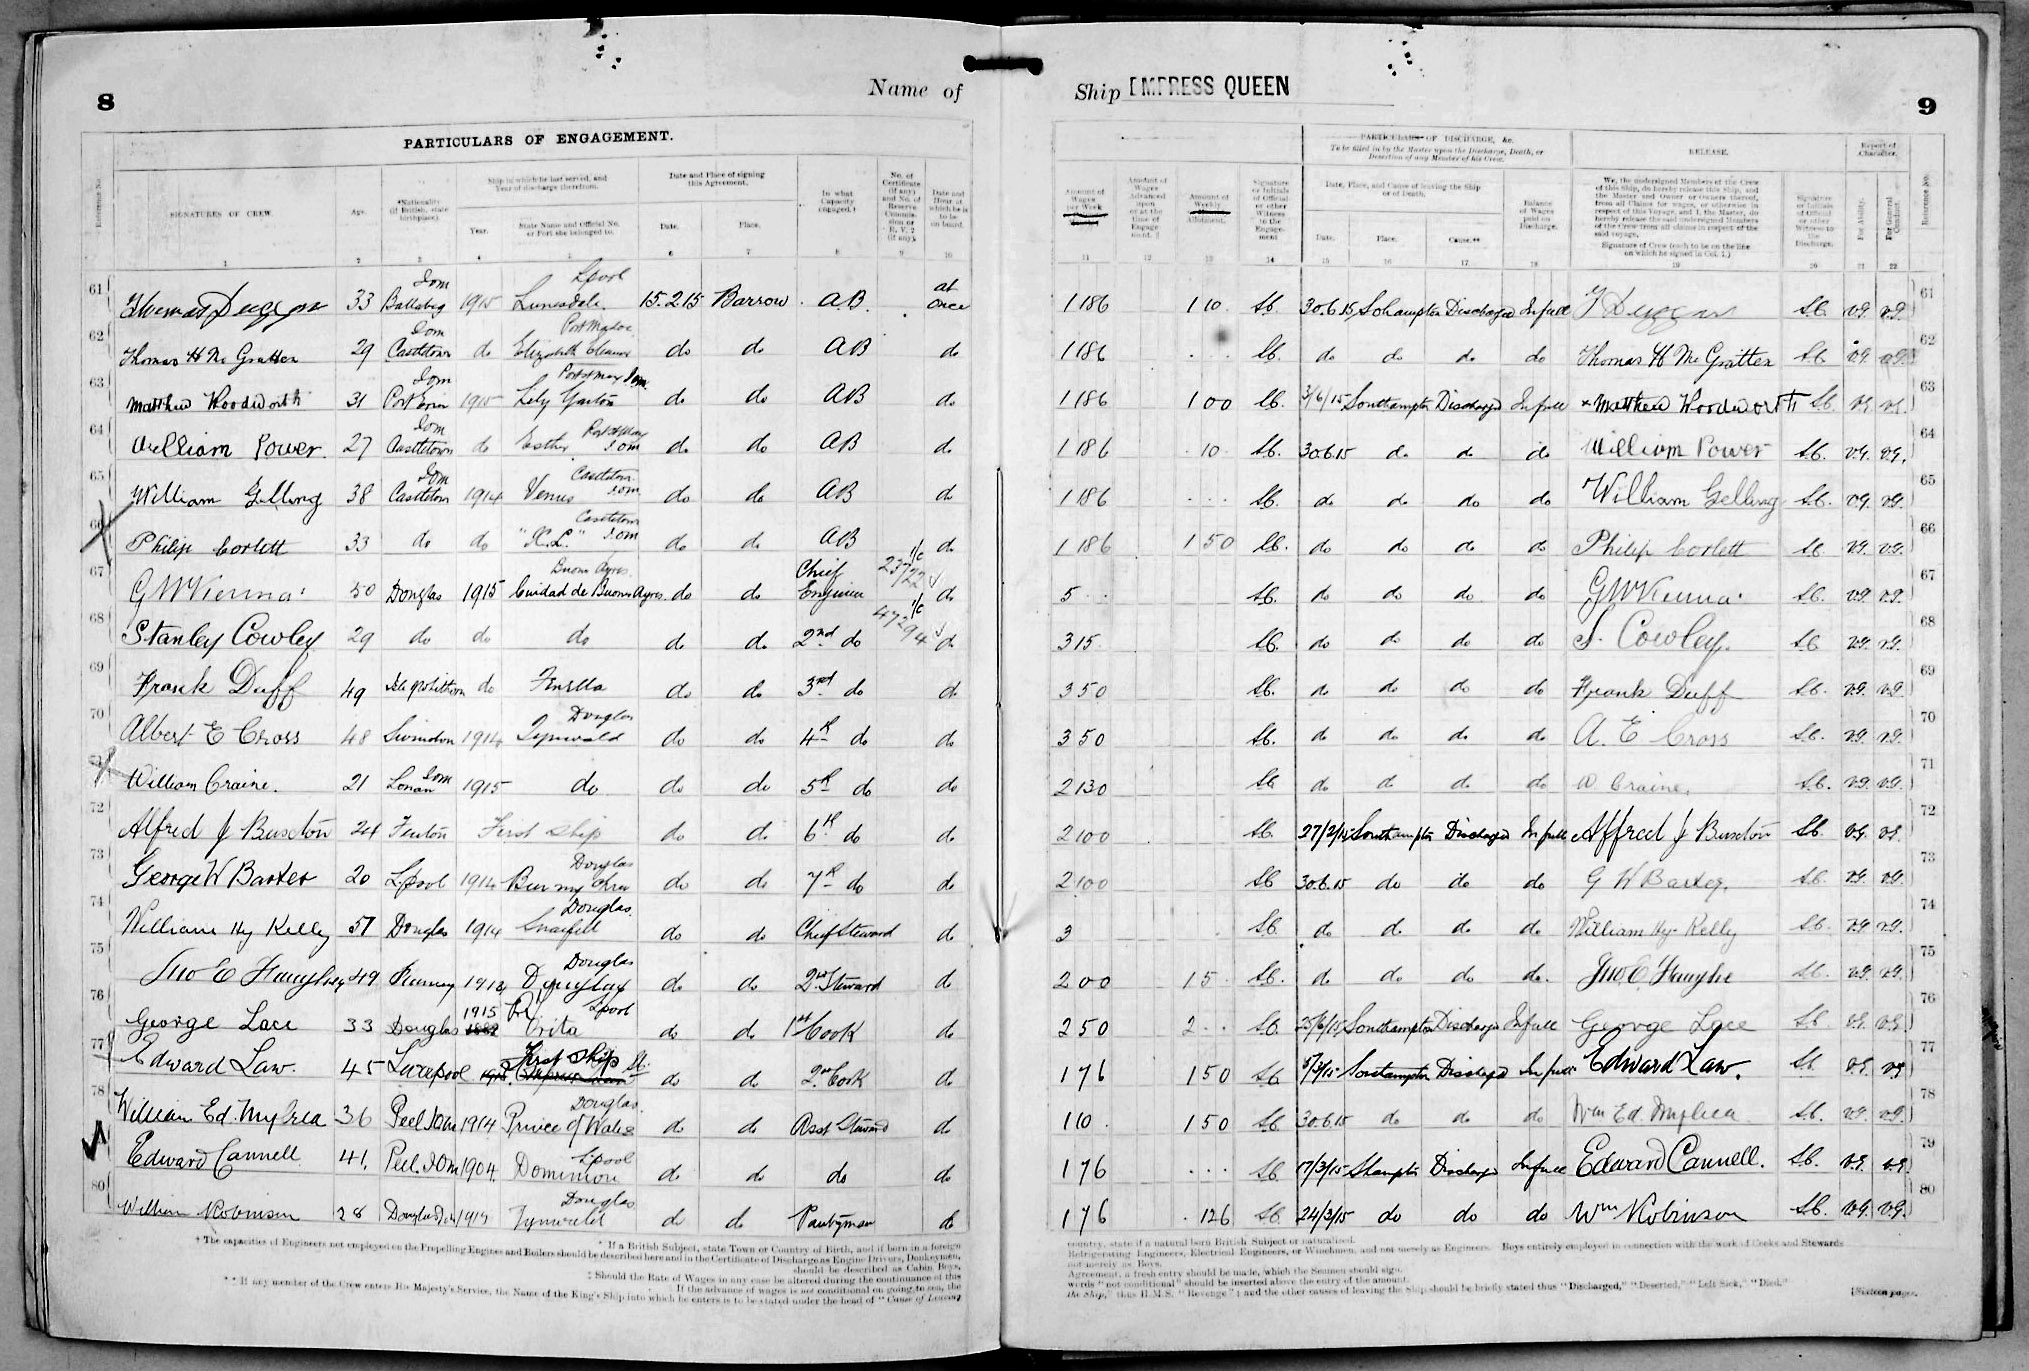 8
Name of
PARTICULARS OF ENGAGEMENT.
Reference No.
SIGNATURES OF CREW.
Age.
*Nationality (if British, state birthplace).
Ship in which he last served, and Year of discharge therefrom.
Year.
State Name and Official No. or Port she belonged to.
Date and Place of signing this Agreement.
Date.
Place.
In what Capacity engaged.†
No. of Certificate (if any) and No. of Reserve Commission or R.V. 2 (if any).
Date and Hour at which he is to be on board.
1 2 3 4 5 6 7 8 9 10
61 Thomas Duggan 33 Iom Ballabeg 1915 Lpool Lunesdale 15.2.15 Barrow A.B. at once
62 Thomas H Mc Gratten 29 Iom Castletown do Elizabeth Eleanor do do AB do
63 Matthew Woodworth 31 Iom Port Erin 1915 Port St Mary Iom Lily Garton do do AB do
64 William Power 27 Iom Castletown do Esther Port St Mary Iom do do AB do
65 William Gelling 38 Iom Castletown 1914 Venus Castletown Iom do do AB do
66 Philip Corlett 33 do do Castletown Iom do do AB do
67 50 Douglas 1915 Buenos Ayres Ciudad de Buenos Ayres do do Chief Engineer 23722 do
68 Stanley Cowley 29 do do do do do 2nd do 47294 do
69 Frank Duff 49 do Fenella do do 3rd do do
70 Albert E Cross 48 Swindon 1914 Douglas Tynwald do do 4th do do
William Craine. 21 Lonan Iom 1915 do do do 5th do do
72 Alfred J Buxton 24 Fenton First Ship do do 6th do do
73 George W Baxter 20 Lpool 1914 Douglas do do 7th do do
74 William Hy Kelly 51 Douglas 1914 Douglas. Snaefell do do Chief Steward do
75 Jno E 49 Ramsey Douglas Douglas do do 2nd Steward do
76 George Lace 33 Douglas 1915 Lpool do do 1st Cook do
77 Edward Law. 45 Liverpool First Ship do do 2nd Cook do
78 William Ed. Mylrea 36 Peel Iom 1914 Douglas. Prince of Wales do do Asst Steward do
Edward Cannell 41. Peel. Iom 1904. Lpool Dominion do do do do
80 William Robinson 28 Douglas Iom Douglas Tynwald do do Pantryman do
* If a British Subject, state Town or Country of Birth, and if born in a foreign
† The capacities of Engineers not employed on the Propelling Engines and Boilers should be described here and in the Certificate of Discharge as Engine Drivers, Donkeymen,
should be described as Cabin Boys.
‡ Should the Rate of Wages in any case be altered during the continuance of this
If the advance of wages is not conditional on going to sea, the
** If any member of the Crew enters His Majesty's Service, the Name of the King's Ship into which he enters is to be stated under the head of "Cause of Leaving
Ship EMPRESS QUEEN
9
Amount of Wages per Week
Amount of Wages Advanced upon or at the time of Engagement. ‡
Amount of Weekly Allotment.
Signature or Initials of Official or other Witness to the Engagement
PARTICULARS OF DISCHARGE, &c.
To be filled in by the Master upon the Discharge, Death, or Desertion of any Member of his Crew.
Date, Place, and Cause of leaving the Ship or of Death.
Date.
Place.
Cause.**
Balance of Wages paid on Discharge.
RELEASE.
We, the undersigned Members of the Crew of this Ship, do hereby release this Ship, and the Master and Owner or Owners thereof, from all Claims for wages, or otherwise in respect of this Voyage, and I, the Master, do hereby release the said undersigned Members of the Crew from all claims in respect of the said voyage.
Signature of Crew (each to be on the line on which he signed in Col. 1.)
Signature or Initials of Official or other Witness to the Discharge.
Report of Character.
For Ability.
For General Conduct.
Reference No.
11 12 13 14 15 16 17 18 19 20 21 22
1 18 6 1 10 30.6.15 Sohampton Discharged In full T Duggan v.g. v.g. 61
1 18 6 do do do do Thomas H Mc Gratten v.g. v.g. 62
1 18 6 1 0 0 3/6/15 Southampton Discharged In full x Matthew Woodworth v.g. v.g. 63
1 18 6 10 30.6.15 do do do William Power v.g. v.g. 64
1 18 6 do do do do William Gelling v.g. v.g. 65
1 18 6 1 5 0 do do do do Philip Corlett v.g. v.g. 66
5 do do do do v.g. v.g. 67
3 15 do do do do S. Cowley. v.g. v.g. 68
3 5 0 do do do do Frank Duff v.g. v.g. 69
3 5 0 do do do do A. E Cross v.g. v.g. 70
2 13 0 do do do do W Craine. v.g. v.g. 71
2 10 0 Southampton Discharged In full Alfred J Buxton v.g. v.g. 72
2 10 0 30.6.15 do do do G W Baxter. v.g. v.g. 73
3 do do do do William Hy. Kelly v.g. v.g. 74
2 0 0 15 do do do do. Jno. E. v.g. v.g. 75
2 5 0 2 Southampton Discharged In full George Lace v.g. v.g. 76
1 7 6 1 5 0 Southampton Discharged In full Edward Law. v.g. v.g. 77
1 10 1 5 0 30.6.15 do do do Wm Ed. Mylrea v.g. v.g. 78
1 7 6 17/3/15 Shampton Discharged In full Edward Cannell. v.g. v.g. 79
1 7 6 12 6 24/3/15 do do do Wm Robinson v.g. v.g. 80
country, state if a natural born British Subject or naturalised.
Refrigerating Engineers, Electrical Engineers, or Winchmen, and not merely as Engineers. Boys entirely employed in connection with the work of Cooks and Stewards
not merely as Boys.
Agreement, a fresh entry should be made, which the Seamen should sign.
words "not conditional" should be inserted above the entry of the amount.
the Ship," thus H.M.S. "Revenge"; and the other causes of leaving the Ship should be briefly stated thus "Discharged," "Deserted," "Left Sick," "Died."
[Sixteen pages.